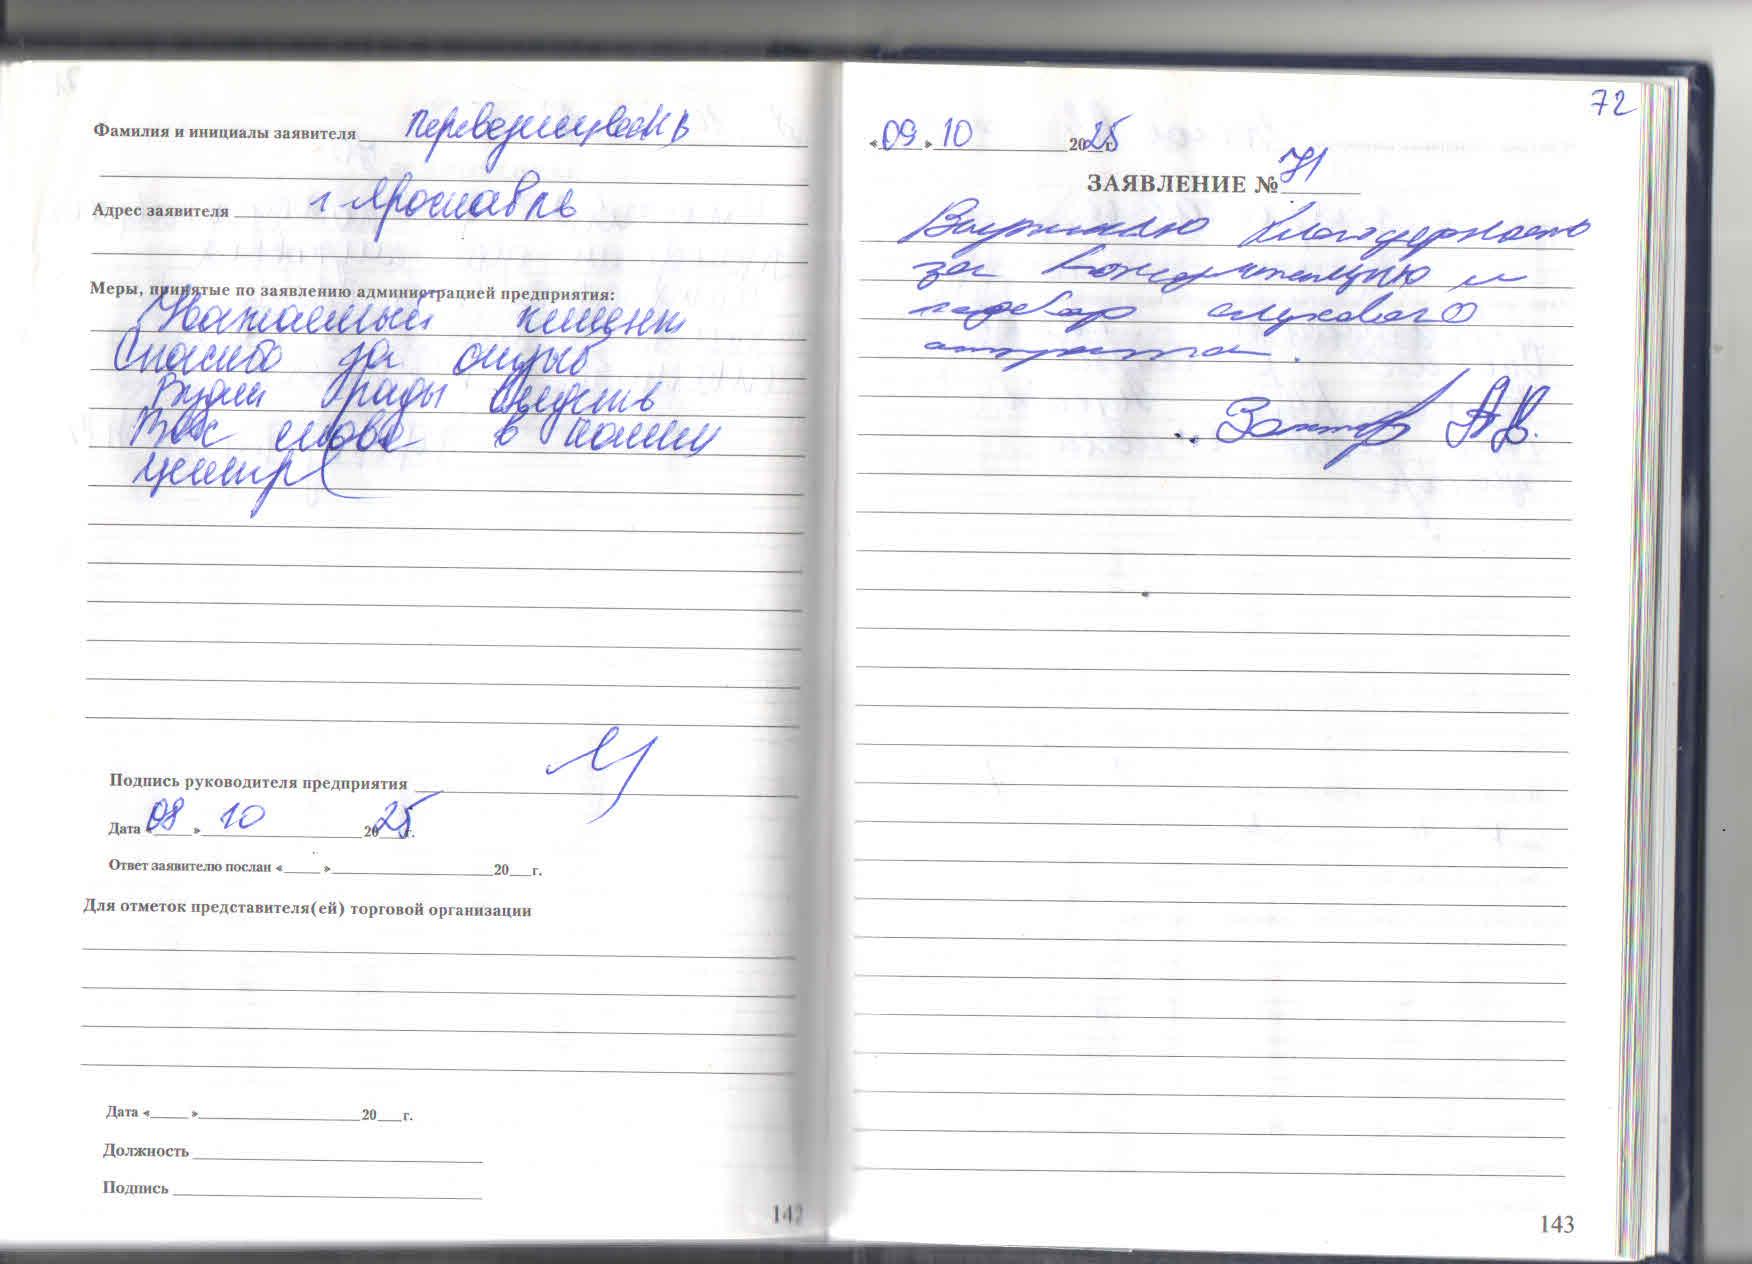 Фамилия и инициалы заявителя
Адрес заявителя г Ярославль
Меры, принятые по заявлению администрацией предприятия:
Уважаемый клиент
Спасибо за отзыв
Будем рады видеть
Вас снова в нашем
центре
Подпись руководителя предприятия
Дата «08» 10 2025г.
Ответ заявителю послан «____» ____ 20__г.
Для отметок представителя(ей) торговой организации
Дата «____» ____ 20__г.
Должность
Подпись
142
72
«09» 10 2025г.
ЗАЯВЛЕНИЕ № 71
Выражаю благодарность
за консультацию и
подбор слухового
аппарата.
А.В.
143